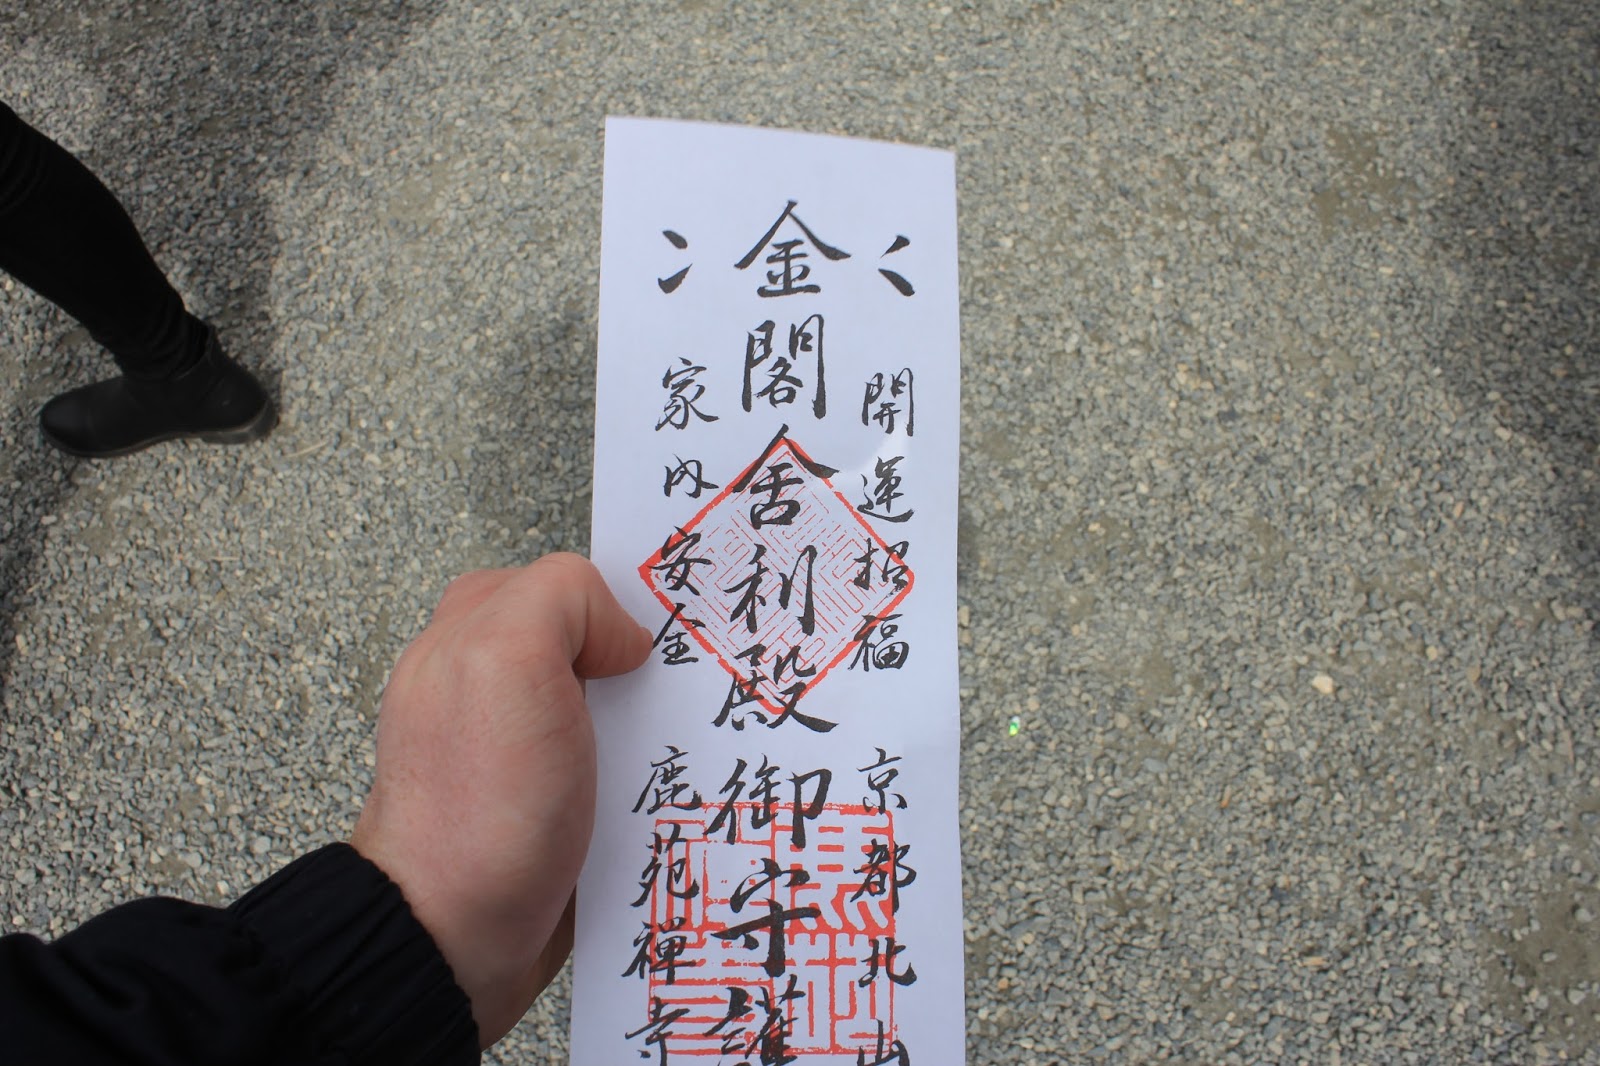 開運招福
京都北山
金閣舍利殿御守護
家内安全
鹿苑禅寺